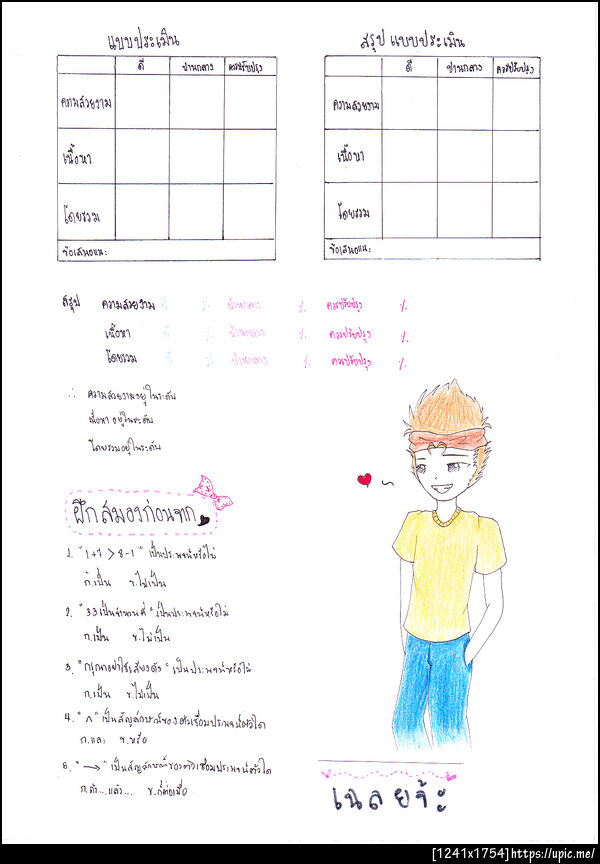 แบบประเมิน
ดี ปานกลาง ควรปรับปรุง
ความสวยงาม
เนื้อหา
โดยรวม
ข้อเสนอแนะ:
สรุป แบบประเมิน
ดี ปานกลาง ควรปรับปรุง
ความสวยงาม
เนื้อหา
โดยรวม
ข้อเสนอแนะ:
สรุป ความสวยงาม ดี % ปานกลาง % ควรปรับปรุง %
เนื้อหา ดี % ปานกลาง % ควรปรับปรุง %
โดยรวม ดี % ปานกลาง % ควรปรับปรุง %
∴ ความสวยงามอยู่ในระดับ
เนื้อหา อยู่ในระดับ
โดยรวมอยู่ในระดับ
ฝึกสมองก่อนจาก
1. "1+7 > 8-1" เป็นประพจน์หรือไม่
ก.เป็น ข.ไม่เป็น
2. "33เป็นจำนวนคี่" เป็นประพจน์หรือไม่
ก.เป็น ข.ไม่เป็น
3. "กรุณาอย่าใช้เสียงดัง" เป็นประพจน์หรือไม่
ก.เป็น ข.ไม่เป็น
4. "∧" เป็นสัญลักษณ์ของตัวเชื่อมประพจน์ตัวใด
ก.และ ข.หรือ
5. "→" เป็นสัญลักษณ์ของตัวเชื่อมประพจน์ตัวใด
ก.ถ้า...แล้ว... ข.ก็ต่อเมื่อ
เฉลยจ้ะ
[1241x1754]https://upic.me/